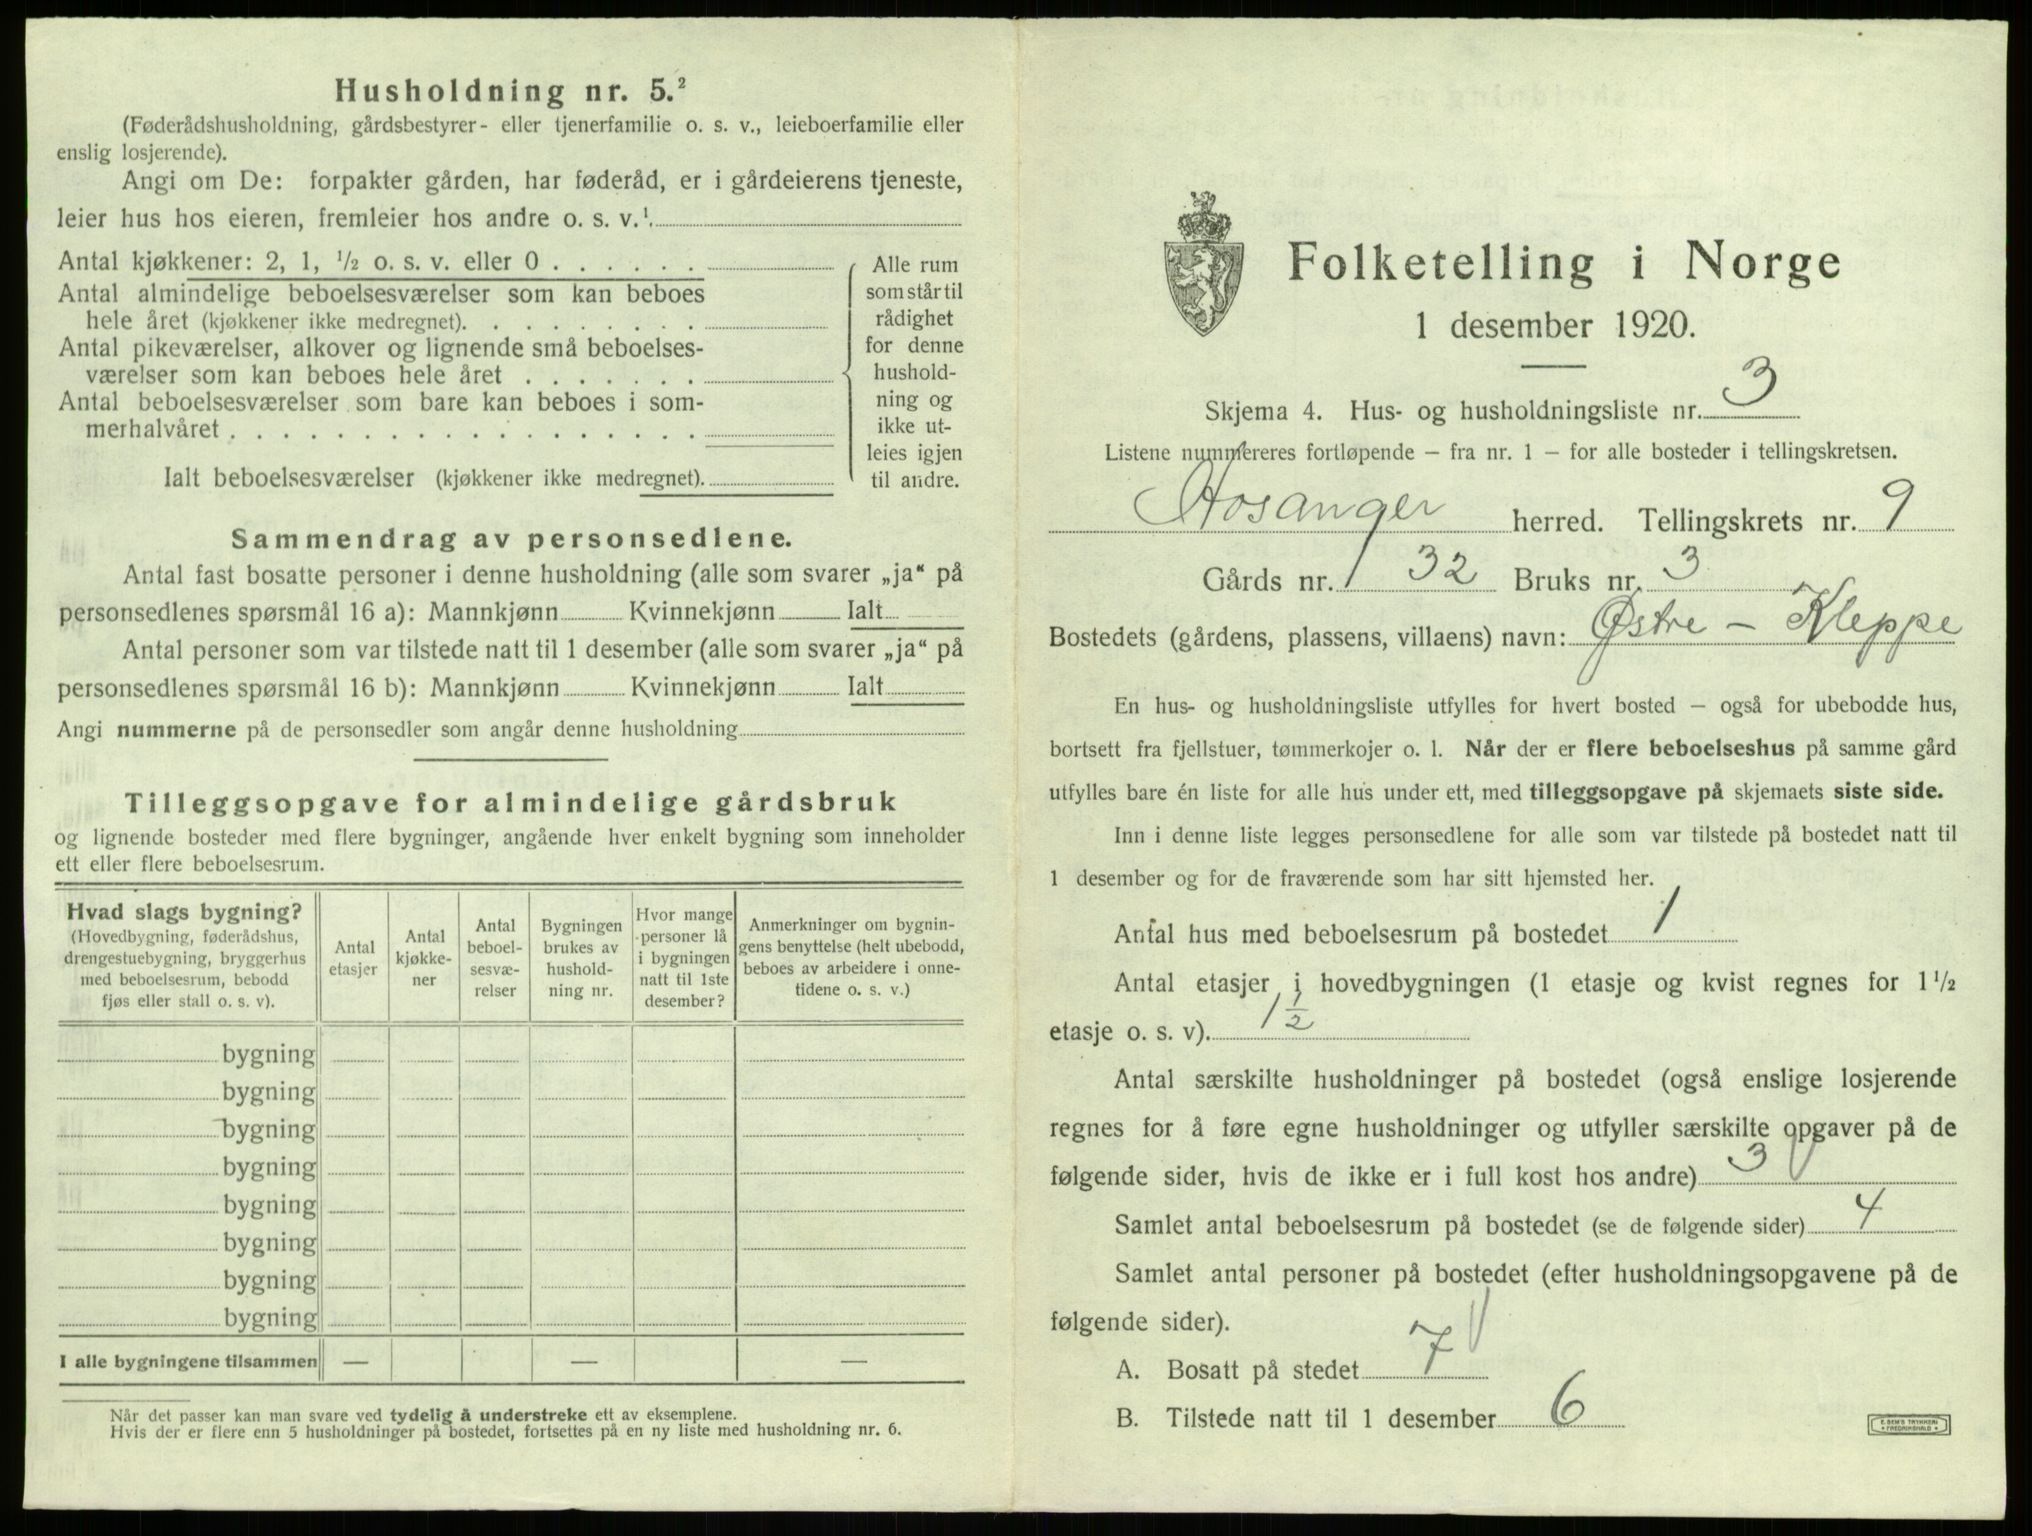 Husholdning nr. 5.²
(Føderådshusholdning, gårdsbestyrer- eller tjenerfamilie o. s. v., leieboerfamilie eller
enslig losjerende).
Angi om De: forpakter gården, har føderåd, er i gårdeierens tjeneste,
leier hus hos eieren, fremleier hos andre o. s. v.¹
Antal kjøkkener: 2, 1, ½ o. s. v. eller 0 . . . . . .
Antal almindelige beboelsesværelser som kan beboes
hele året (kjøkkener ikke medregnet). . . . . . . . . .
Antal pikeværelser, alkover og lignende små beboelses-
værelser som kan beboes hele året . . . . . . .
Antal beboelsesværelser som bare kan beboes i som-
merhalvåret . . . . . . . . . . . . . . . . . .
Ialt beboelsesværelser (kjøkkener ikke medregnet).
Alle rum
som står til
rådighet
for denne
hushold-
ning og
ikke ut-
leies igjen
til andre.
Sammendrag av personsedlene.
Antal fast bosatte personer i denne husholdning (alle som svarer „ja“ på
personsedlenes spørsmål 16 a): Mannkjønn Kvinnekjønn Ialt
Antal personer som var tilstede natt til 1 desember (alle som svarer „ja“ på
personsedlenes spørsmål 16 b): Mannkjønn Kvinnekjønn Ialt
Angi nummerne på de personsedler som angår denne husholdning
Tilleggsopgave for almindelige gårdsbruk
og lignende bosteder med flere bygninger, angående hver enkelt bygning som inneholder
ett eller flere beboelsesrum.
Hvad slags bygning?
(Hovedbygning, føderådshus,
drengestuebygning, bryggerhus
med beboelsesrum, bebodd
fjøs eller stall o. s. v).
Antal
etasjer
Antal
kjøkke-
ner
Antal
beboel-
sesvæ-
relser
Bygningen
brukes av
hushold-
ning nr.
Hvor mange
personer lå
i bygningen
natt til 1ste
desember?
Anmerkninger om bygnin-
gens benyttelse (helt ubebodd,
beboes av arbeidere i onne-
tidene o. s. v.)
bygning
bygning
bygning
bygning
bygning
bygning
bygning
bygning
I alle bygningene tilsammen — — —
Når det passer kan man svare ved tydelig å understreke ett av eksemplene.
Hvis der er flere enn 5 husholdninger på bostedet, fortsettes på en ny liste med husholdning nr. 6.
Folketelling i Norge
1 desember 1920.
Skjema 4. Hus- og husholdningsliste nr. 3
Listene nummereres fortløpende – fra nr. 1 – for alle bosteder i tellingskretsen.
Hosanger herred. Tellingskrets nr. 9
Gårds nr. 32 Bruks nr. 3
Bostedets (gårdens, plassens, villaens) navn: Østre – Kleppe
En hus- og husholdningsliste utfylles for hvert bosted – også for ubebodde hus,
bortsett fra fjellstuer, tømmerkojer o. l. Når der er flere beboelseshus på samme gård
utfylles bare én liste for alle hus under ett, med tilleggsopgave på skjemaets siste side.
Inn i denne liste legges personsedlene for alle som var tilstede på bostedet natt til
1 desember og for de fraværende som har sitt hjemsted her.
Antal hus med beboelsesrum på bostedet 1
Antal etasjer i hovedbygningen (1 etasje og kvist regnes for 1½
etasje o. s. v). 1½
Antal særskilte husholdninger på bostedet (også enslige losjerende
regnes for å føre egne husholdninger og utfyller særskilte opgaver på de
følgende sider, hvis de ikke er i full kost hos andre) 3
Samlet antal beboelsesrum på bostedet (se de følgende sider) 4
Samlet antal personer på bostedet (efter husholdningsopgavene på de
følgende sider).
A. Bosatt på stedet 7
B. Tilstede natt til 1 desember 6
E. SEM'S TRYKKERI
• FREDRIKSHALD •